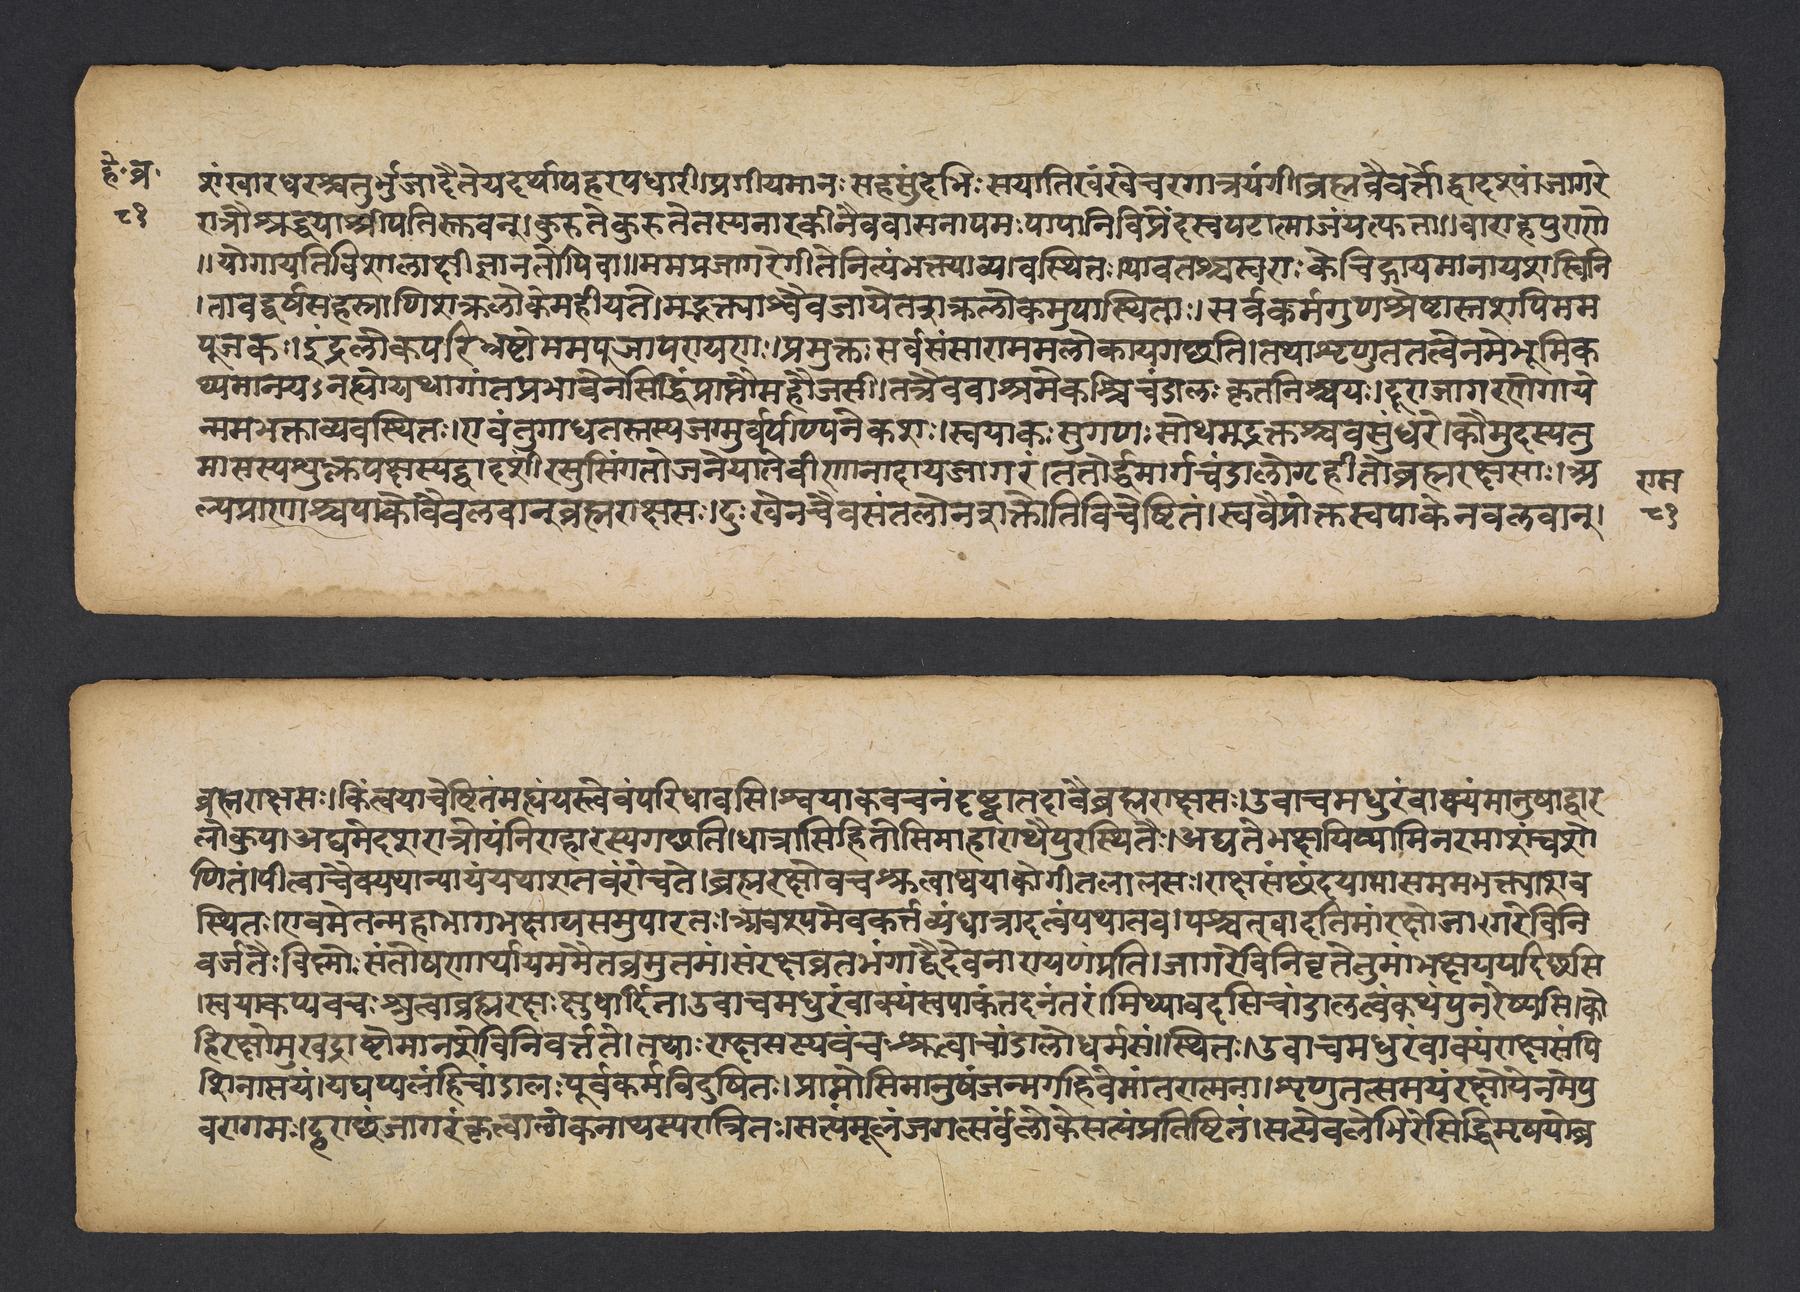 हे. व्र.
८१
शंखारधरश्चतुर्भुजादैतेयदर्पापहरपधारी।प्रगीयमानः सहसुंदभिः सयातिखंखेचरगात्रयंगी।ब्रह्मवैवर्ते।द्वादश्यांजागरे
रात्रौश्रद्धयाश्रीपतिस्तवन्।कुरुतेकुरुतेतस्यनारकीनैववासनापमः पापानिविप्रेंद्रस्वपटात्माजंयत्फता।।वाराहेपुराणे
॥योगायतिविशालाक्षीज्ञानतोपिवा॥ममप्रजागरेगीतेनित्यंभक्त्याव्य।वस्थितः।यावतश्चस्वराः केचिद्गायमानायशस्विनि
।तावद्वर्षसहस्त्राणिशक्रलोकेमहीयते।मद्भक्त्याश्चैवजायेतशक्रलोकमुपास्थिताः।सर्वकर्मगुणश्रेष्टास्तत्रापिमम
पूजकः।इंद्रलोकपरिभ्रष्टोममपूजापरायणः।प्रमुक्तः सर्वसंसारान्ममलोकायगच्छति।तथाशृणुततत्वेनमेभूमिक
थ्यमानय।नद्योयथागांतप्रभावेनसिद्धिंप्राप्तौमहौजसी।तत्रैववाश्रमेकश्चिच्चंडालः कृतनिश्चयः।दूराजागरणेगाये
न्ममभक्ताव्यवस्थितः।एवंतुगाधतस्तस्यजग्मुर्वर्षाण्यनेकशः।स्वयाकः सुगणः सोथमद्भक्तश्चवसुंधरे।कौमुदस्यतु
मासस्यशुक्लपक्षस्यद्वादशीं।सुसिंगतोजनेयातेवीणामादायजागरं।ततोर्द्धमार्गचंडालोगृहीतोब्रह्मरक्षसाः।अ
ल्पप्राणाश्चपाकोवैवलवान्ब्रह्मराक्षसः।दुःखेनचैवसंतप्तोनशक्तोतिविचेष्टितं।स्ववैप्रोक्तस्वपाकेनवलवान्।
राम
८१
ब्रह्मराक्षसः।किंत्वयाचेष्टितंमह्यंयस्त्वेवंपरिधावसि।श्वपाकवचनंदृष्ट्वातदावैब्रह्मराक्षसः।उवाचमधुरंवाक्यंमानुषाद्वार
लोकुपा।अद्यमेदशरात्रोयंनिराहारस्यगच्छति।धात्रासिहितोसिमाहाराथैपुरस्थितैः।अद्यतेभक्षयिष्यामिनरमाशंच्वशो
णितं।पीत्वाचैवयथान्यायंयथाशतवंरोचते।ब्रह्मरक्षोवचश्रुत्वाश्वपाकोगीतलालसः।राक्षसंछंदयामासममभक्त्याशव
स्थितः।एवमेतन्महाभागभक्षायसमुपारतः।अवश्यमेवकर्त्तव्यंधात्रादत्वंपथातव।पश्चत्वादतिमांरक्षोजागरेविनि
वर्जतैः विष्णोः संतोषणार्थायममैतव्रमुतमं।संरक्षव्रतभंगाद्वैदेवनारायणंप्रति।जागरेविनिवृत्तेतुमांभक्षययदिच्छसि
।स्वयाकप्यवचः श्रुत्वाब्रह्मरक्षः क्षुधार्दिन।उवाचमधुरंवाक्यंस्वपाकंतदनंतरं।मिथ्यावदसिचांडालत्वंकथंपुनरेष्यसि।को
हिरक्षोमुखद्राष्टोमानशेविनिवर्त्तते।तथाः राक्षसस्यवंचः श्रुत्वाचांडालोधर्मसं।स्थितः।उवाचमधुरंवाक्यंराक्षसंपि
शिनासयं।यद्यप्यलंहिचांडालः पूर्वकर्मविदुषितः।प्राप्तोसिमानुषंजन्मगहिवेमांतरात्मना।शृणुतत्समयंरक्षोयेनमेपु
नरागमः।दूराछंजागरंकृत्वालोकनाथस्परान्नितः।सत्यंमूलंजगत्सर्वंलोकेसत्यंप्रतिष्टितं।सत्येवलेभिरेसिद्धिमृषयोब्र